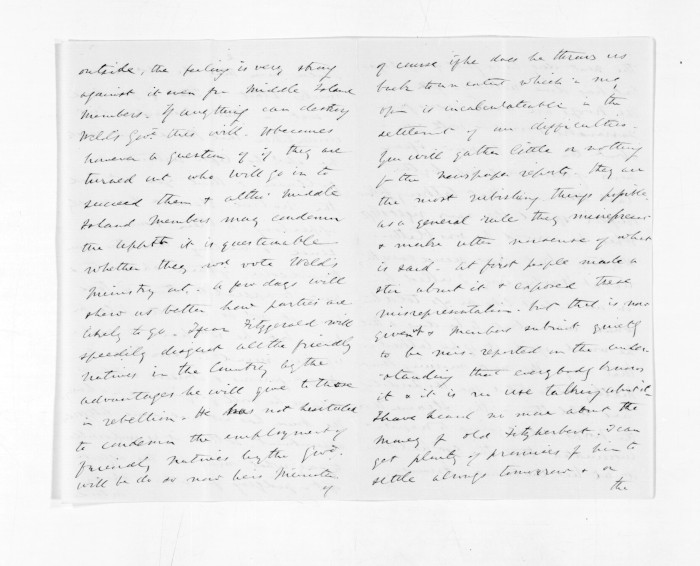 outside, the feeling is very strong
against it even fm Middle Island
Members. If anything can destroy
Weld's Govt. this will. It becomes
however a question of if they are
turned out who will go in to
succeed them & altho' Middle
Island Members may condemn
the apptt. it is questionable
whether they wd. vote Weld's
Ministry out. A few days will
show us better how parties are
likely to go. I fear Fitzgerald will
speedily disgust all the friendly
Natives in the Country by the
advantages he will give to those
in rebellion. He has not hesitated
to condemn the employment of
friendly Natives by the Govt.
will he do so now he is Minister
of
of course if he does he throws us
back to an extent which in my
opin is incalculateable in the
settlement of our difficulties.
You will gather little or nothing
f the newspaper reports. they are
the most rubishing things possible.
as a general rule they misrepresent
& make utter nonsense of what
is said. At first people made a
stir about it & exposed these
misrepresentations. but that is now
given & Members submit quietly
to be mis-reported on the under-
standing that everybody knows
it & it is no use talking about it.
I have heard no more about the
Money f old Fitzherbert. I can
get plenty of promises f him to
settle always tomorrow & or
the